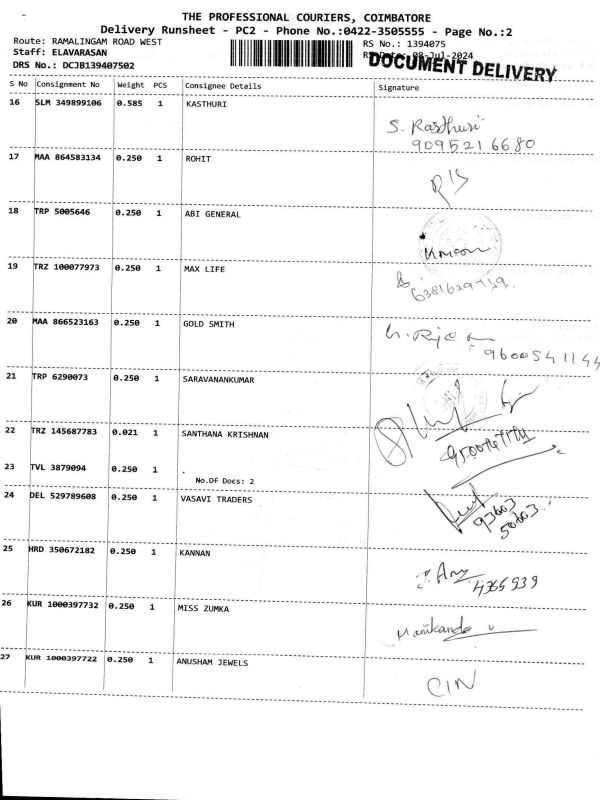 THE PROFESSIONAL COURIERS, COIMBATORE
Delivery Runsheet - PC2 - Phone No.:0422-3505555 - Page No.:2
Route: RAMALINGAM ROAD WEST RS No.: 1394075
Staff: ELAVARASAN RS Date: 08-Jul-2024
DOCUMENT DELIVERY
DRS No.: DCJB139407502
S No Consignment No Weight PCS Consignee Details Signature
16 SLM 349899106 0.585 1 KASTHURI
S. Kasthuri
9095216680
17 MAA 864583134 0.250 1 ROHIT
18 TRP 5005646 0.250 1 ABI GENERAL
19 TRZ 100077973 0.250 1 MAX LIFE
20 MAA 866523163 0.250 1 GOLD SMITH
9600541144
21 TRP 6290073 0.250 1 SARAVANANKUMAR
22 TRZ 145687783 0.021 1 SANTHANA KRISHNAN
23 TVL 3879094 0.250 1 .
No.Of Docs: 2
24 DEL 529789608 0.250 1 VASAVI TRADERS
93603
50603
25 HRD 350672182 0.250 1 KANNAN
4365939
26 KUR 1000397732 0.250 1 MISS ZUMKA
Manikanda
27 KUR 1000397722 0.250 1 ANUSHAM JEWELS
CIN